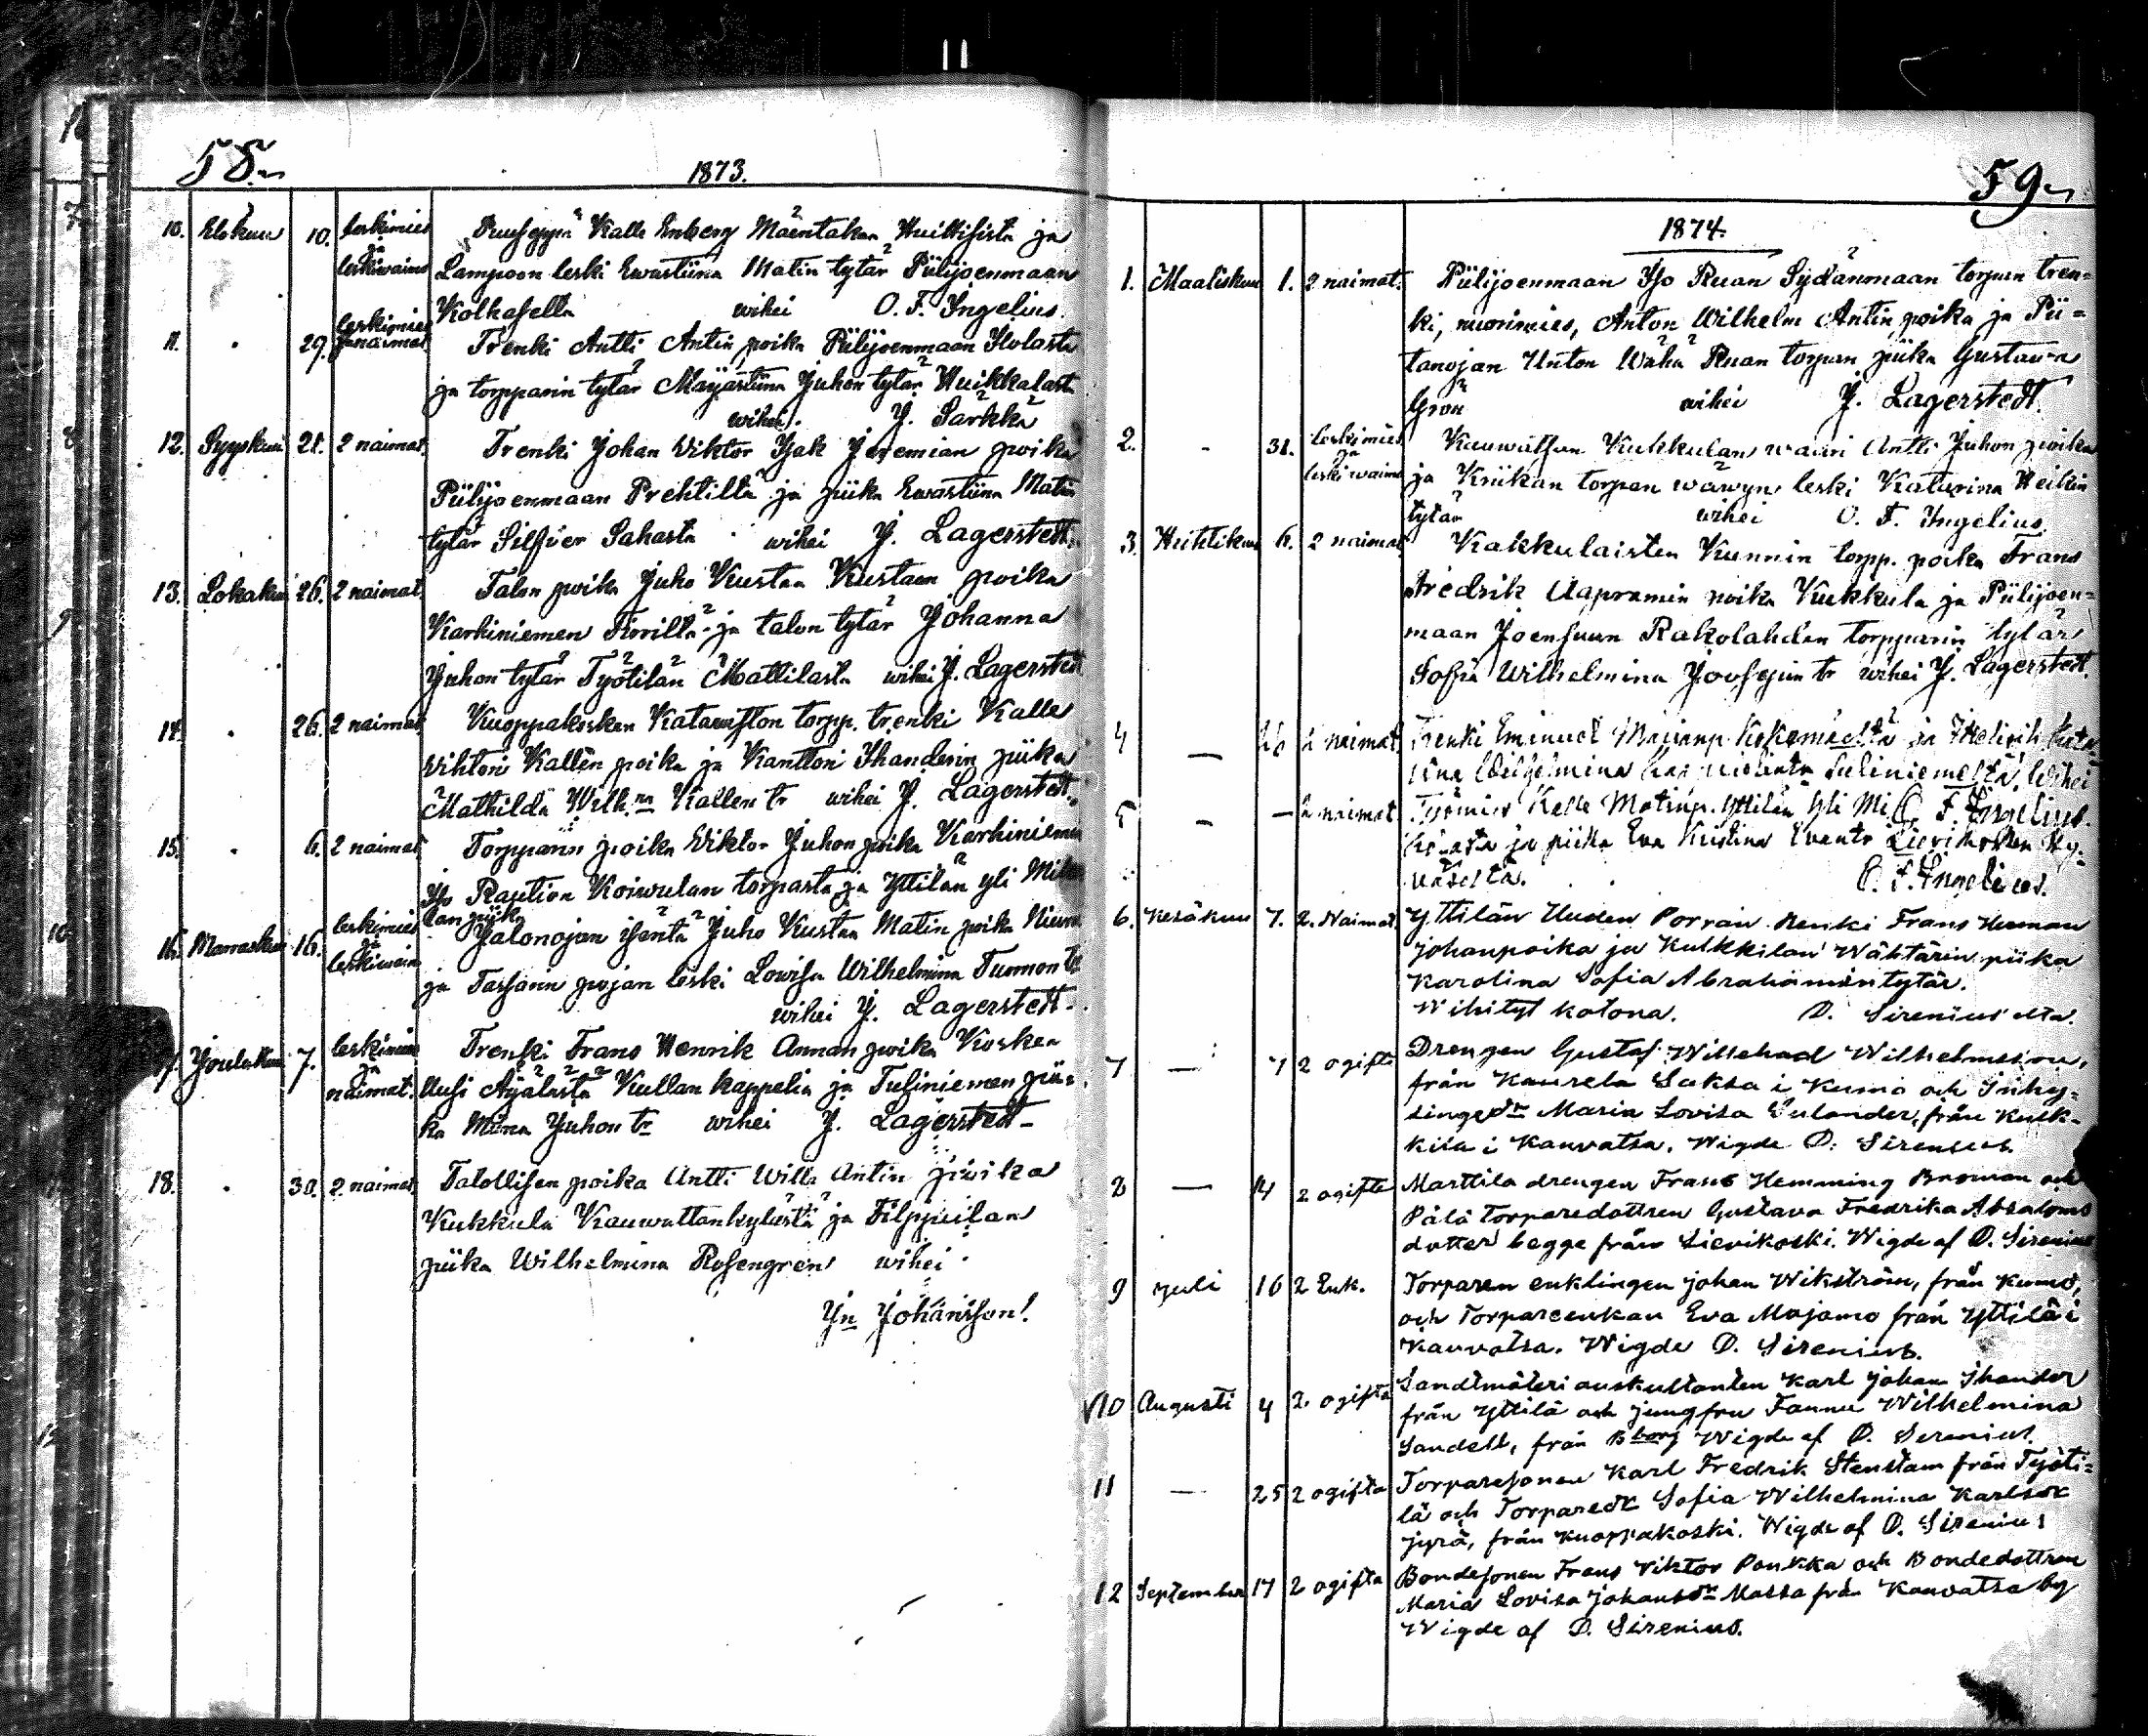 58
1873.
10. Elokuu 10. leskimies ja leskiwaimo Puuseppä Kalle Enberg Mäentakaa Huittisista ja
Lampoon leski Ewastiina Matin tytär Piilijoenmaan
Kolkasella wihei O. F. Ingelius.
11. " 29. leskimies ja naimat. Trenki Antti Antin poika Piilijoenmaan Ilolasta
ja torpparin tytär Majastiina Juhon tytär Huikkalasta
wihei. J. Särkkä
12. Syyskuu 21. 2 naimat. Trenki Johan Viktor Isak Jeremian poika
Piilijoenmaan Prehtiltä ja piika Ewastiina Matin
tytär Silfver Sahasta wihei J. Lagerstedt.
13. Lokakuu 26. 2 naimat. Talon poika Juho Kustaa Kustaan poika
Karhiniemen Fiorilta ja talon tytär Johanna
Juhon tytär Työtilän Mattilasta wihei J. Lagerstedt
14. " 26. 2 naimat. Kuoppakosken torpp. trenki Kalle
Wihtori Kallen poika ja Kanttori Ihanderin piika
Mathilda Wilh.na Kallen tr wihei J. Lagerstedt.
15. " 6. 2 naimat. Torpparin poika Viktor Juhon poika Karhiniemen
Iso Raution Koiwulan torpasta ja Yttilän yli
lan piika
16. Marraskuu 16. leskimies ja leskiwaim Jalonojan isäntä Juho Kustaa Matin poika
ja pojan leski Lowisa Wilhelmina Tuomon tr
wihei J. Lagerstedt.
17. Joulukuu 7. leskimies ja naimat. Trenki Frans Henrik Annan poika Kosken
Uusi Äijälästä Kullan kappelia ja Tusiniemen pii-
ka Miina Juhon tr wihei J. Lagerstedt
18. " 30. 2 naimat. Talollisen poika Antti Wille Antin poika
Kukkula Kauwattankylästä ja Filppuilan
piika Wilhelmina Rosengren wihei
Jn Johansson!
59
1874.
1. Maaliskuu 1. 2 naimat. Piilijoenmaan Iso Ruan Sydänmaan torpan tren-
ki, nuorimies, Anton Wilhelm Antin poika ja Pii-
tanojan Unton Wähä Ruan torpan piika Gustawa
Grön wihei J. Lagerstedt.
2. " 31. leskimies ja leskiwaimo Kauwatsan Kukkulan waari Antti Juhon poika
ja Kriikan torpan wäwyn leski Katarina Heikin
tytär wihei O. F. Ingelius.
3. Huhtikuu 6. 2 naimat Kakkulaisten Kunnin torpp. poika Frans
Fredrik Aapramin poika Kukkula ja Piilijoen-
maan Joensuun Rakolahden torpparin tytär
Sofia Wilhelmina Joosepin tr wihei J. Lagerstedt.
4 — 26 2 naimat. Trenki Emanuel Kokemäeltä ja Itellisih
Wilhelmina wihei
5 — — 2 naimat. Työmies Kalle Matinp. Yttilän Yli O. F. Ingelius.
ja piika Eva Kristina Lievikosken
O. F. Ingelius.
6. Kesäkuu 7. 2. Naimat. Yttilän Uuden Porrain Renki Frans Herman
Johanpoika ja Kulkkilan Wähtärin piika
Karolina Sofia Abrahamintytär.
Wihityt kotona. D. Sirenius'elta.
7 — 7 2 ogifta Drengen Gustaf Willehad Wilhelmsson,
från Kaurela Saksa i Kumo och Inhy-
singedr Maria Lovisa Sulander, från Kulk-
kila i Kauvatsa. Wigde D. Sirenius.
8 — 14 2 ogifta Marttila drengen Frans Hemming Broman och
Pälä Torparedottren Gustava Fredrika Absaloms
dotter begge från Lievikoski. Wigde af D. Sirenius
9 Juli 16 2 Enk. Torparen enklingen Johan Wikström, från Kumo,
och Torpareenkan Eva Majamo från Yttilä i
Kauvatsa. Wigde D. Sirenius.
10 Augusti 4 2 ogifta Landtmäteri auskultanten Karl Johan Ihander
från Yttilä och jungfru Fanny Wilhelmina
Sandell, från Bborg Wigde af D. Sirenius.
11 — 25 2 ogifta Torparesonen Karl Fredrik Stenstam från Työti-
lä och Torparedr Sofia Wilhelmina Karlsdr
Jyrä, från Kuoppakoski. Wigde af D. Sirenius
12 September 17 2 ogifta Bondesonen Frans Viktor Paukka och Bondedottren
Maria Lovisa Johansdr Massa från Kauvatsa by
Wigde af D. Sirenius.